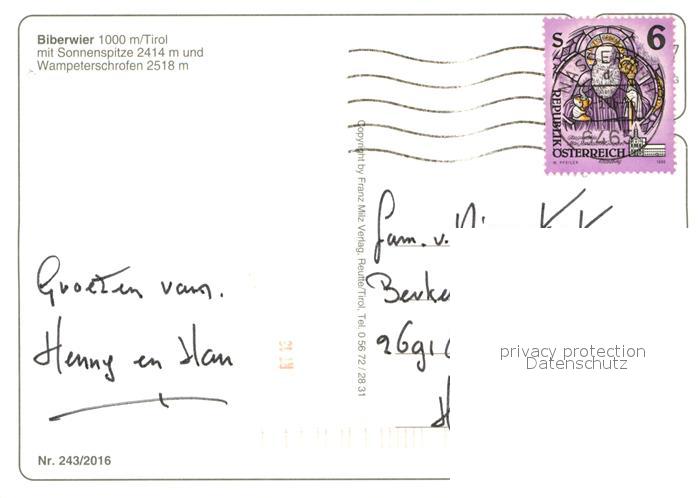 Biberwier 1000 m/Tirol
mit Sonnenspitze 2414 m und
Wampeterschrofen 2518 m
Groeten van.
Henny en Han
Nr. 243/2016
Copyright by Franz Milz Verlag, Reutte/Tirol, Tel. 0 56 72 / 28 31
S 6
REPUBLIK
ÖSTERREICH
Fam. v.
2691
privacy protection
Datenschutz